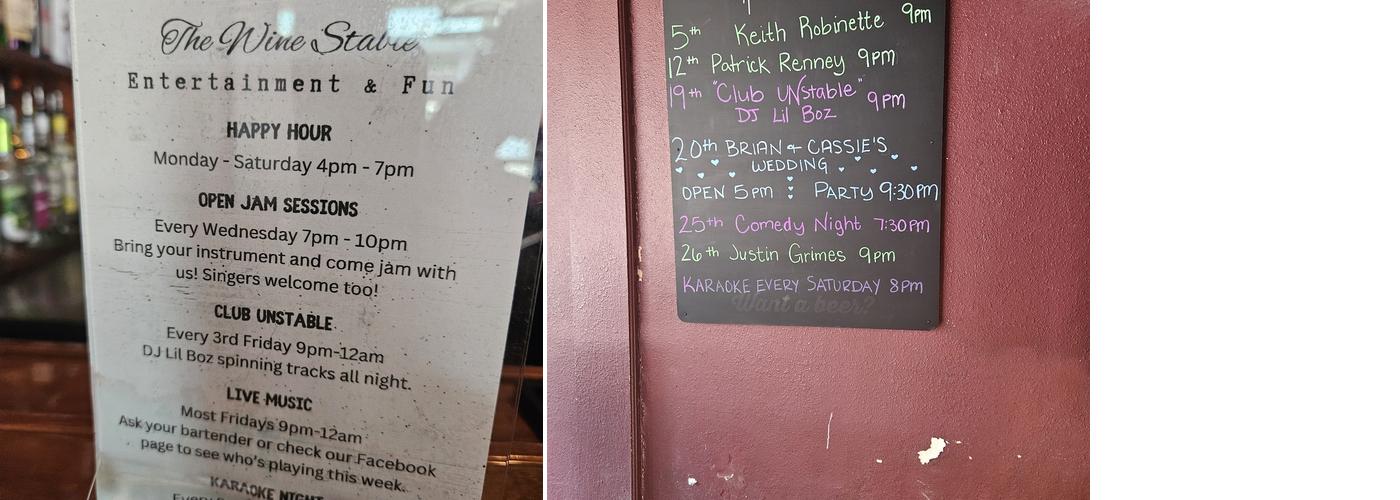 The Wine Stable
Entertainment & Fun
HAPPY HOUR
Monday - Saturday 4pm - 7pm
OPEN JAM SESSIONS
Every Wednesday 7pm - 10pm
Bring your instrument and come jam with
us! Singers welcome too!
CLUB UNSTABLE
Every 3rd Friday 9pm-12am
DJ Lil Boz spinning tracks all night.
LIVE MUSIC
Most Fridays 9pm-12am
Ask your bartender or check our Facebook
page to see who's playing this week.
KARAOKE NIGHT
5th Keith Robinette 9pm
12th Patrick Renney 9pm
19th "Club UNstable" 9pm
DJ Lil Boz
20th BRIAN + CASSIE'S
WEDDING
OPEN 5pm : PARTY 9:30PM
25th Comedy Night 7:30pm
26th Justin Grimes 9pm
KARAOKE EVERY SATURDAY 8pm
Want a beer?